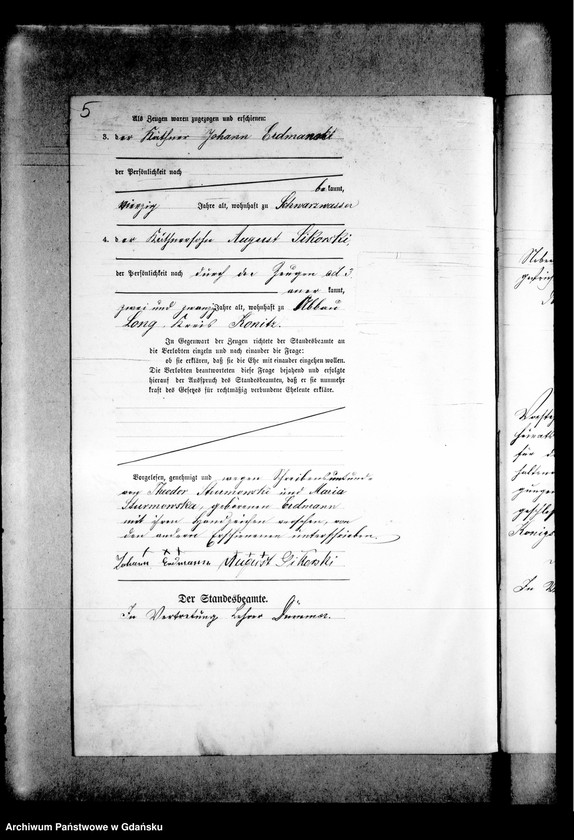 5
Als Zeugen waren zugezogen und erschienen:
3. der Käthner Johann Erdmanski
der Persönlichkeit nach
bekannt,
vierzig Jahre alt, wohnhaft zu Schwarzwasser
4. der Käthnersohn August Sikorski,
der Persönlichkeit nach durch den Zeugen ad 3
aner kannt,
zwei und zwanzig Jahre alt, wohnhaft zu Abbau
Long Kreis Konitz.
In Gegenwart der Zeugen richtete der Standesbeamte an
die Verlobten einzeln und nach einander die Frage:
ob sie erklären, daß sie die Ehe mit einander eingehen wollen.
Die Verlobten beantworteten diese Frage bejahend und erfolgte
hierauf der Ausspruch des Standesbeamten, daß er sie nunmehr
kraft des Gesetzes für rechtmäßig verbundene Eheleute erkläre.
Vorgelesen, genehmigt und wegen Schreibensunkunde
von und Maria
geborenen Erdmann
mit ihrem Handzeichen versehen, von
den anderen Erschienenen unterschrieben.
+ + + + +
Johann Erdmann August Sikorski
Der Standesbeamte.
In Vertretung Lehrer
Neben
In V
Archiwum Państwowe w Gdańsku